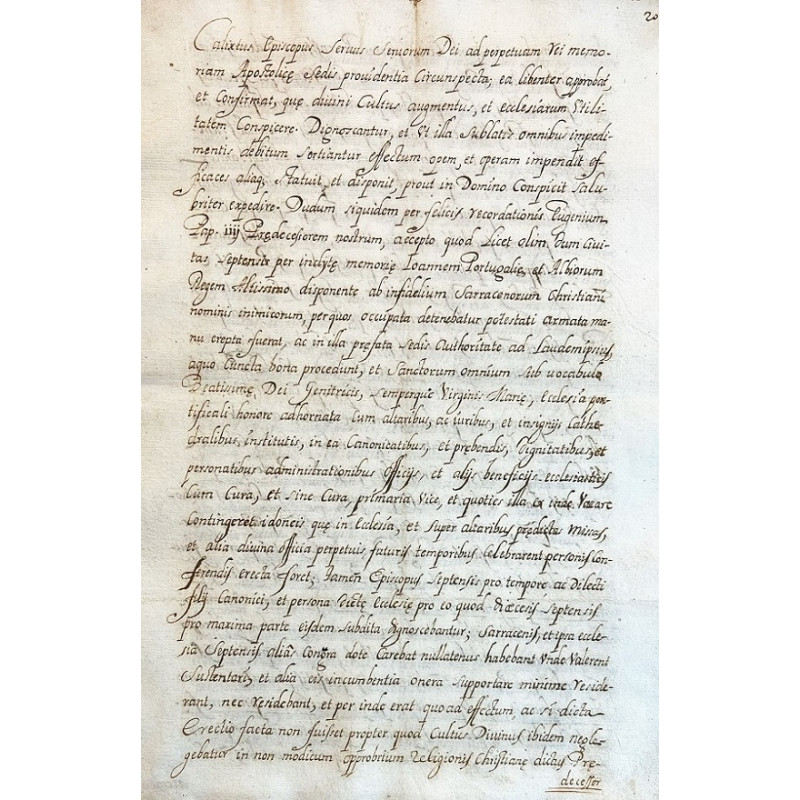 20
Calixtus Episcopus Servus Servorum Dei ad perpetuam rei memo-
riam Apostolicę Sedis providentia Circunspecta; ea libenter approbat,
et Confirmat, quę divini Cultus augmentus, et ecclesiarum Utili-
tatem Conspicere. Dignoscantur, et Ut illa Sublatis omnibus impedi-
mentis debitum Sortiantur effectum opem, et operam impendit ef
ficaces aliaq; Statuit, et disponit, prout in Domino Conspicit Salu-
briter expedire. Dudum siquidem per felicis recordationis Eugenium
Pap. iiij Prędecessorem nostrum, accepto quod Licet olim dum Civi-
tas Septensis per inclytę memorię Ioannem Portugalię, et Albiorum
Regem Altissimo disponente ab infidelium Sarraconorum Christiani
nominis inimicorum, per quos occupata detenebatur potestati armata ma-
nu erepta fuerat, ac in illa prefata Sedis Authoritate ad Laudem ipsius,
a quo Cuncta bona procedunt, et Sanctorum omnium Sub vocabulo
Beatissimę, Dei Genitricis, Semperque Virginis Marię, Ecclesia pon-
tificali honore adhornata Cum altaribus, ac iuribus, et insignijs Cathe-
dralibus, institutis, in ea Canonicatibus, et prebendis, Dignitatibus, et
personatibus administrationibus officijs, et alijs beneficijs ecclesiasticis
Cum Cura, et Sine Cura, primaria Vice, et quoties illa ex inde Vacare
Contingeret idoneis quę in Ecclesia, et Super altaribus predictis Missas,
et alia divina officia perpetuis futuris temporibus Celebrarent personis Con-
ferendis erecta foret; Tamen Episcopus Septensis pro tempore ac Dilecti
filij Canonici, et persona dictę Ecclesię pro eo quod diœcesis Septensis
pro maxima parte eisdem Subdita dignoscebantur; Sarracenis, et ipsa eccle-
sia Septensis alias Congra dote Carebat nullatenus habebant Unde Valerent
Sustentari, et alia eis incumbentia onera Supportare minime reside-
rant, nec residebant, et per inde erat quo ad effectum, ac si dicta
Erectio facta non fuisset propter quod Cultus Divinus ibidem negle-
gebatur in non modicum opprobrium religionis Christianę dictus Prę-
decessor